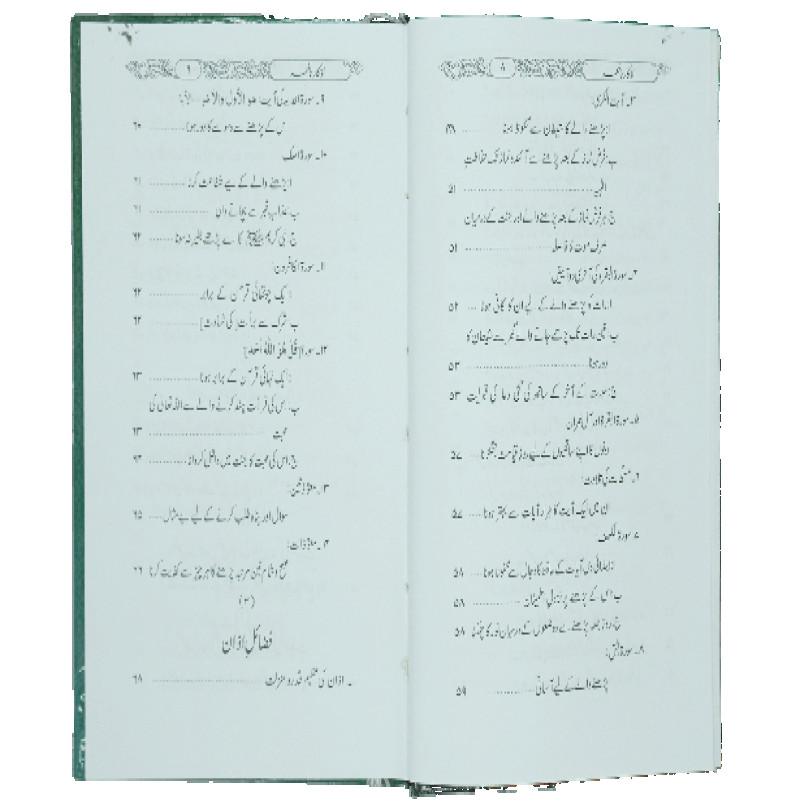 ۸
۳۔ آیت الکرسی:
ا: پڑھنے والے کا شیطان سے محفوظ ہونا ........ ۴۸
ب: فرض نماز کے بعد پڑھنے سے آئندہ نماز تک حفاظتِ
الٰہیہ ........ ۵۱
ج: ہر فرض نماز کے بعد پڑھنے والے اور جنت کے درمیان
صرف موت کا فاصلہ ........ ۵۱
۴۔ سورۃ البقرہ کی آخری دو آیتیں:
ا: رات کو پڑھنے والے کے لیے ان کا کافی ہونا ... ۵۲
ب: تین رات تک پڑھے جانے والے گھر سے شیطان کا
دور ہونا ........ ۵۳
ج: سورت کے آخر کے ساتھ کی گئی دعا کی قبولیت ۵۳
۵۔ سورۃ البقرۃ اور آل عمران
دونوں کا اپنے ساتھیوں کے لیے روزِ قیامت جھگڑنا ۵۷
۶۔ مسبّحات کی تلاوت:
ان میں ایک آیت کا ہزار آیات سے بہتر ہونا .... ۵۷
۷۔ سورۃ الکہف
ا: ابتدائی دس آیات کے حفظ کا دجال سے محفوظ ہونا ۵۸
ب: اس کے پڑھنے پر نزولِ اطمینان ........ ۵۸
ج: روزِ جمعہ پڑھنے سے دو جمعوں کے درمیان نور کا چمکنا ۵۸
۸۔ سورۃ الفتح:
پڑھنے والے کے لیے آسانی ........ ۵۹
۹
۹۔ سورۃ الحدید کی آیت: هو الأول والآخر ... الآیۃ:
اس کے پڑھنے سے وسوسے کا دور ہونا ........ ۶۰
۱۰۔ سورۃ الملک
ا: پڑھنے والے کے لیے شفاعت کرنا ........ ۶۱
ب: عذابِ قبر سے بچانے والی ........ ۶۱
ج: نبی کریم ﷺ کا اسے پڑھے بغیر نہ سونا ........ ۶۲
۱۱۔ سورۃ الکافرون:
ا: ایک چوتھائی قرآن کے برابر ........ ۶۲
ب: شرک سے برأت [کی شہادت] ........ ۶۲
۱۲۔ سورۃ [قُلْ هُوَ اللّٰهُ أَحَد]
ا: ایک تہائی قرآن کے برابر ہونا ........ ۶۳
ب: اس کی قرأت پسند کرنے والے سے اللہ تعالیٰ کی
محبت ........ ۶۳
ج: اس کی محبت کا جنت میں داخل کروانا ........ ۶۴
۱۳۔ معوّذتین:
سوال اور پناہ طلب کرنے کے لیے بے مثال ..... ۶۵
۱۴۔ معوّذات:
صبح و شام تین مرتبہ پڑھنے کا ہر چیز سے کفایت کرنا ۶۶
(۳)
فضائلِ اذان
۱۔ اذان کی عظیم قدر و منزلت ........ ۶۸